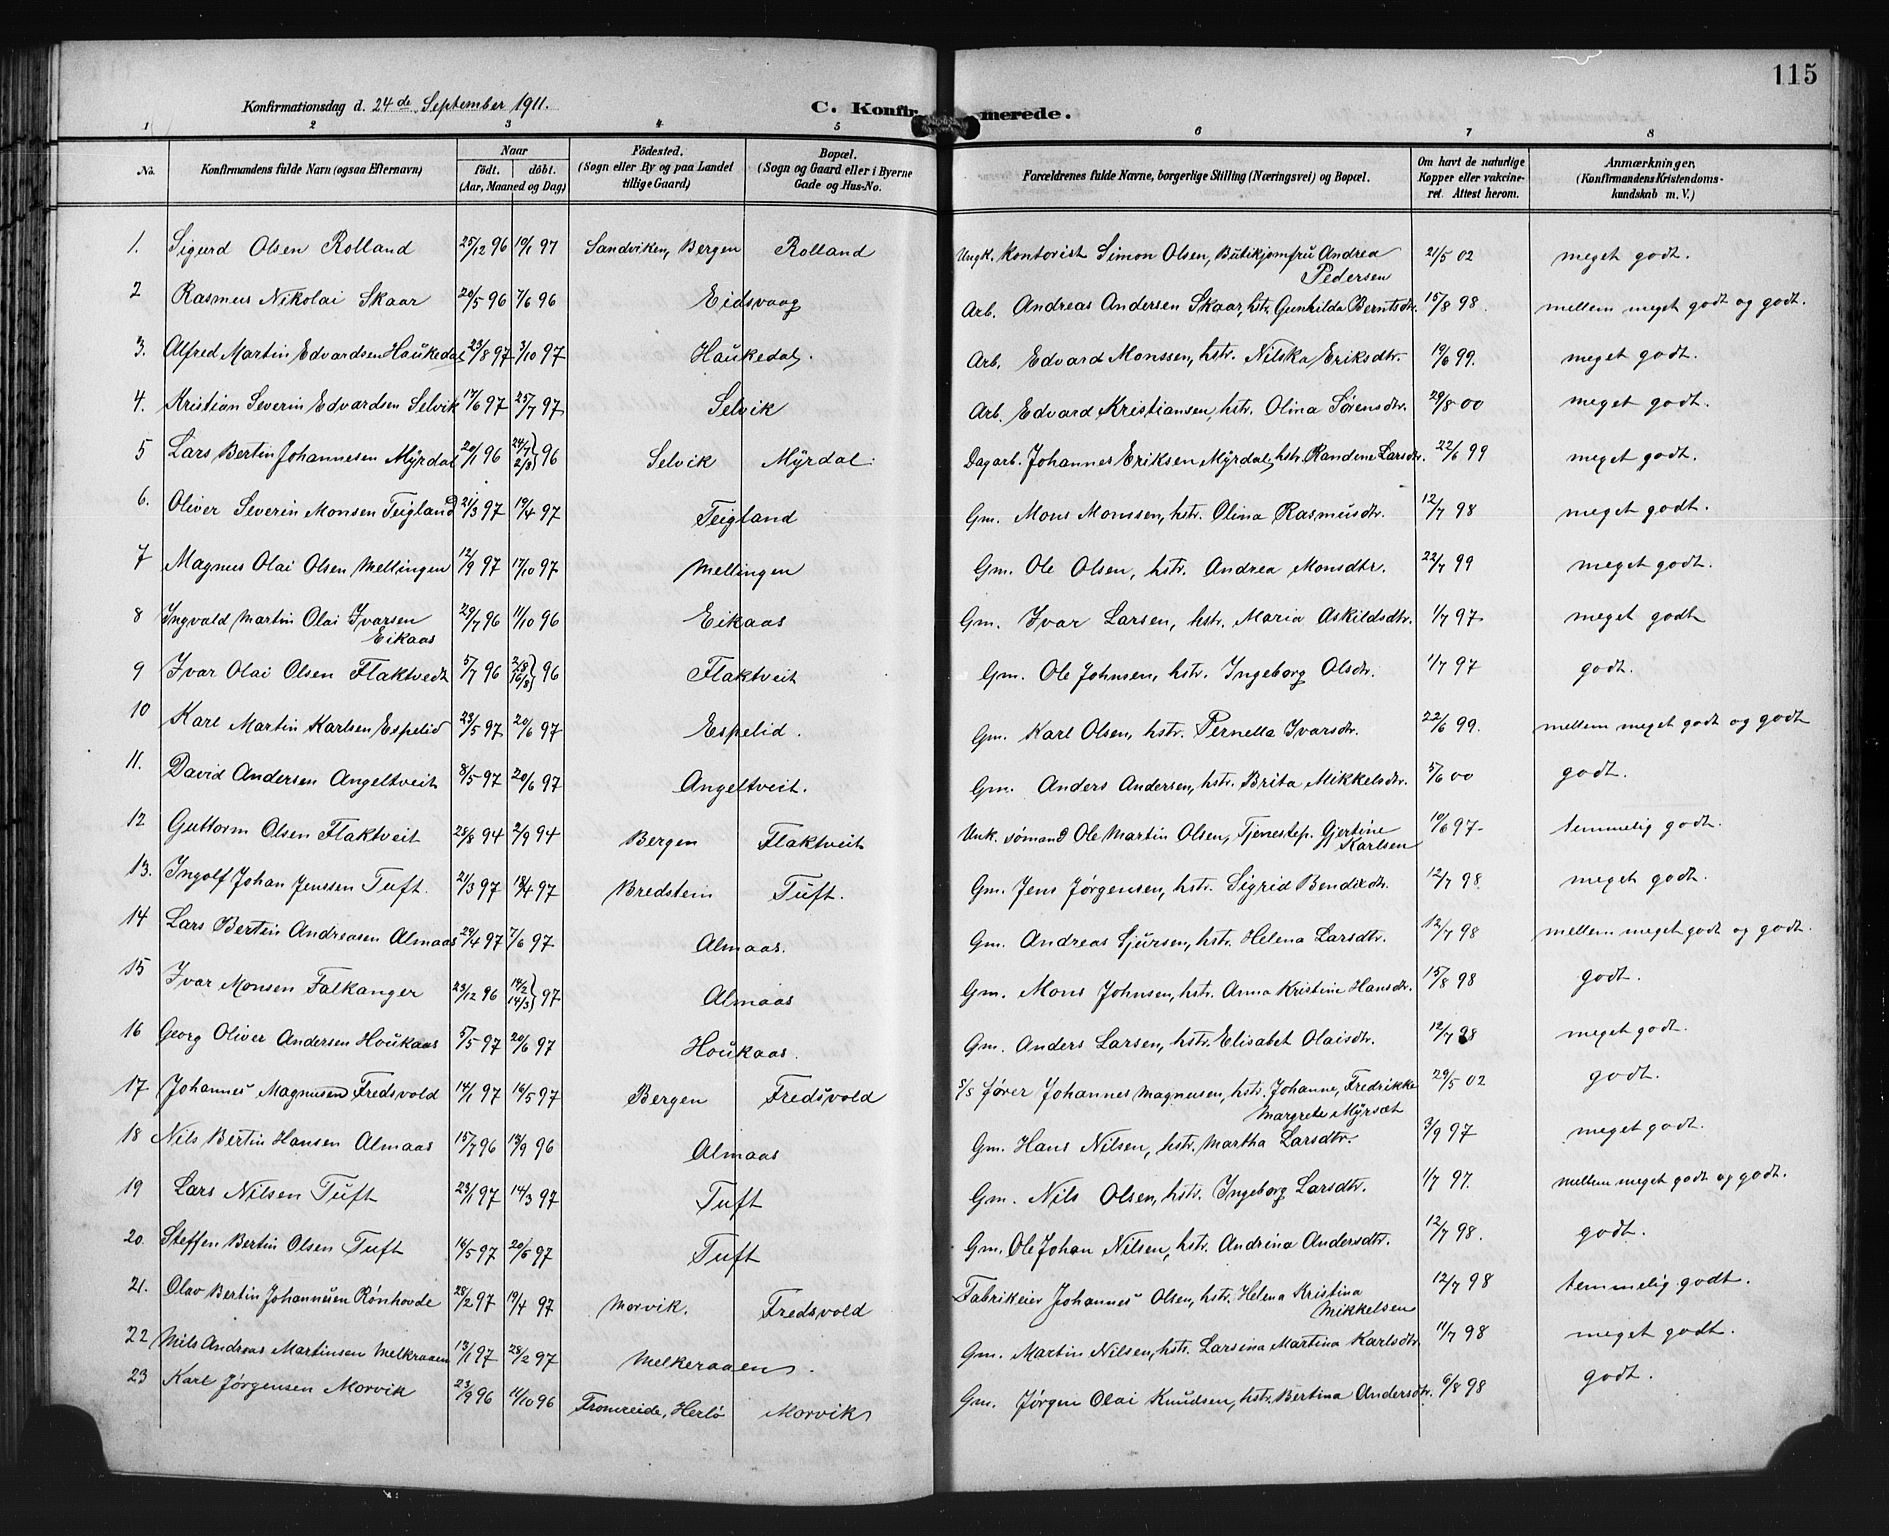 115
Konfirmationsdag d. 24de September 1911.
C. Konfirmerede.
1 2 3 4 5 6 7 8
No. Konfirmandens fulde Narn (ogsaa Efternavn) Naar födt. döbt. (Aar, Maaned og Dag) Födested. (Sogn eller By og paa Landet tillige Gaard) Bopæl. (Sogn og Gaard eller i Byerne Gade og Hus-No. Forældrenes fulde Navne, borgerlige Stilling (Næringsvei) og Bopæl. Om havt de naturlige Kopper eller vakcineret. Attest herom. Anmærkninger. (Konfirmandens Kristendomskundskab m. V.)
1. Sigurd Olsen Rolland 25/12 96 19/1 97 Sandviken, Bergen Rolland Ungk. Kontorist Simon Olsen, Butikjomfru Andrea Pedersen 21/5 02 meget godt.
2 Rasmus Nikolai Skaar 20/5 96 7/6 96 Eidsvaag Arb. Andreas Andersen Skaar, hstr. Gunhilda Berntsdtr. 15/8 98. mellem meget godt og godt.
3. Alfred Martin Edvardsen Haukedal 23/8 97 3/10 97 Haukedal. Arb. Edvard Monssen, hstr. Nilska Eriksdtr. 19/6 99. meget godt.
4. Kristian Severin Edvardsen Selvik 17/6 97 25/7 97 Selvik Arb. Edvard Kristiansen, hstr. Olina Sørensdtr. 29/8 00 meget godt.
5 Lars Bertin Johannesen Myrdal 20/1 96 24/1 2/3} 96 Selvik Myrdal. Dagarb. Johannes Eriksen Myrdal, hstr. Randine Larsdtr. 22/6 99 meget godt.
6. Oliver Severin Monsen Teigland 21/3 97 19/4 97 Teigland Gm. Mons Monssen, hstr. Olina Rasmusdtr. 12/7 98 meget godt.
7 Magnus Olai Olsen Mellingen 12/9 97 17/10 97 Mellingen Gm. Ole Olsen, hstr. Andrea Monsdtr. 22/7 99 meget godt.
8 Ingvald Martin Olai Ivarsen Eikaas 29/7 96 11/10 96 Eikaas Gm. Ivar Larsen, hstr. Maria Askildsdtr. 1/7 97 meget godt
9 Ivar Olai Olsen Flaktvedt 5/7 96 2/8 16/8} 96 Flaktveit Gm. Ole Johnsen, hstr. Ingeborg Olsdtr. 1/7 97 godt.
10 Karl Martin Karlsen Espelid 23/5 97 20/6 97 Espelid. Gm. Karl Olsen, hstr. Pernella Ivarsdtr. 22/6 99. mellem meget godt og godt
11. David Andersen Angeltveit 8/5 97 20/6 97 Angeltveit. Gm. Anders Andersen, hstr. Brita Mikkelsdtr. 5/6 00 godt.
12 Guttorm Olsen Flaktveit 28/8 94 2/9 94 Bergen Flaktveit Unk. sømand Ole Martin Olsen, Tjenestep. Gjertine Karlsen 10/6 97 temmelig godt.
13. Ingolf Johan Jenssen Tuft. 21/3 97 18/4 97 Bredstein Tuft. Gm. Jens Jørgensen, hstr. Sigrid Bendixdtr. 12/7 98. meget godt.
14 Lars Bertin Andreasen Almaas 29/4 97 7/6 97 Almaas. Gm. Andreas Sjursen, hstr. Helena Larsdtr. 12/7 98 mellem meget godt og godt.
15 Ivar Monsen Falkanger 23/12 96 14/2 14/3} 97 Almaas Gm. Mons Johnsen, hstr. Anna Kristine Hansdtr. 15/8 98 godt.
16 Georg Oliver Andersen Houkaas 5/5 97 20/6 97 Houkaas. Gm. Anders Larsen, hstr. Elisabet Olaisdtr. 12/7 98 meget godt.
17 Johannes Magnusen Fredsvold 14/1 97 16/5 97 Bergen Fredsvold S/S fører Johannes Magnusen, hstr. Johanne, Fredrikke Margrete Myrsæt 29/5 02 godt.
18 Nils Bertin Hansen Almaas 15/7 96 13/9 96 Almaas Gm. Hans Nilsen, hstr. Martha Larsdtr. 3/9 97 meget godt.
19 Lars Nilsen Tuft 23/1 97 14/3 97 Tuft Gm. Nils Olsen, hstr. Ingeborg Larsdtr. 1/7 97. mellem meget godt og godt.
20. Steffen Bertin Olsen Tuft 16/5 97 20/6 97 Tuft Gm. Ole Johan Nilsen, hstr. Andrina Andersdtr. 12/7 98. godt.
21. Olav Bertin Johannesen Rønhovde 28/2 97 19/4 97 Morvik. Fredsvold Fabrikeier Johannes Olsen, hstr. Helena Kristina Mikkelsen 12/7 98 temmelig godt.
22 Nils Andreas Martinsen Melkraaen 13/1 97 28/2 97 Melkeraaen. Gm. Martin Nilsen, hstr. Larsina Martina Karlsdtr. 11/7 98 meget godt.
23 Karl Jørgensen Morvik 23/9 96 11/10 96 Fromreide, Herlö Morvik Gm. Jørgen Olai Knudsen, hstr. Bertina Andersdtr. 6/8 98 godt.